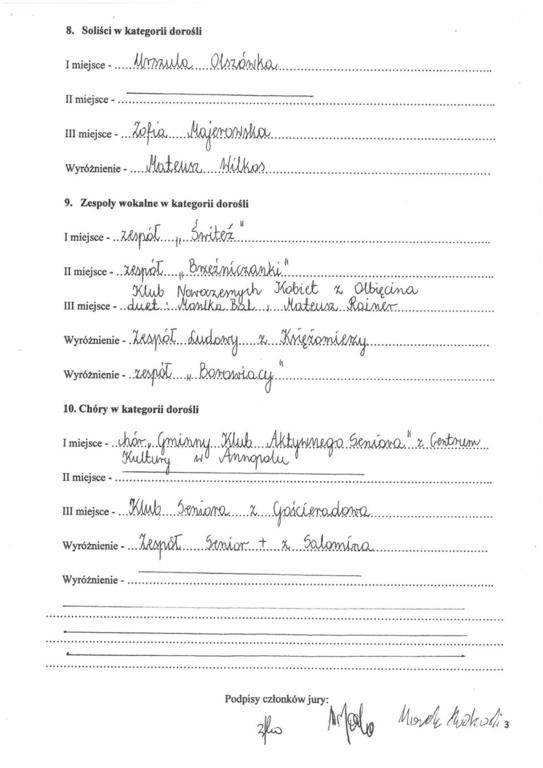 8. Soliści w kategorii dorośli
I miejsce - Urszula Olszówka
II miejsce -
III miejsce - Zofia Majerowska
Wyróżnienie - Mateusz Wilkos
9. Zespoły wokalne w kategorii dorośli
I miejsce - zespół „Świteź"
II miejsce - zespół „Brzeźniczanki"
Klub Nowoczesnych Kobiet z Olbięcina
III miejsce - duet: Monika Bal, Mateusz Rainer
Wyróżnienie - Zespół Ludowy z Księżomierzy
Wyróżnienie - zespół „Borowiacy"
10. Chóry w kategorii dorośli
I miejsce - chór „Gminny Klub Aktywnego Seniora" z Centrum
Kultury w Annopolu
II miejsce -
III miejsce - Klub Seniora z Gościeradowa
Wyróżnienie - Zespół Senior + z Salomina
Wyróżnienie -
Podpisy członków jury:
3